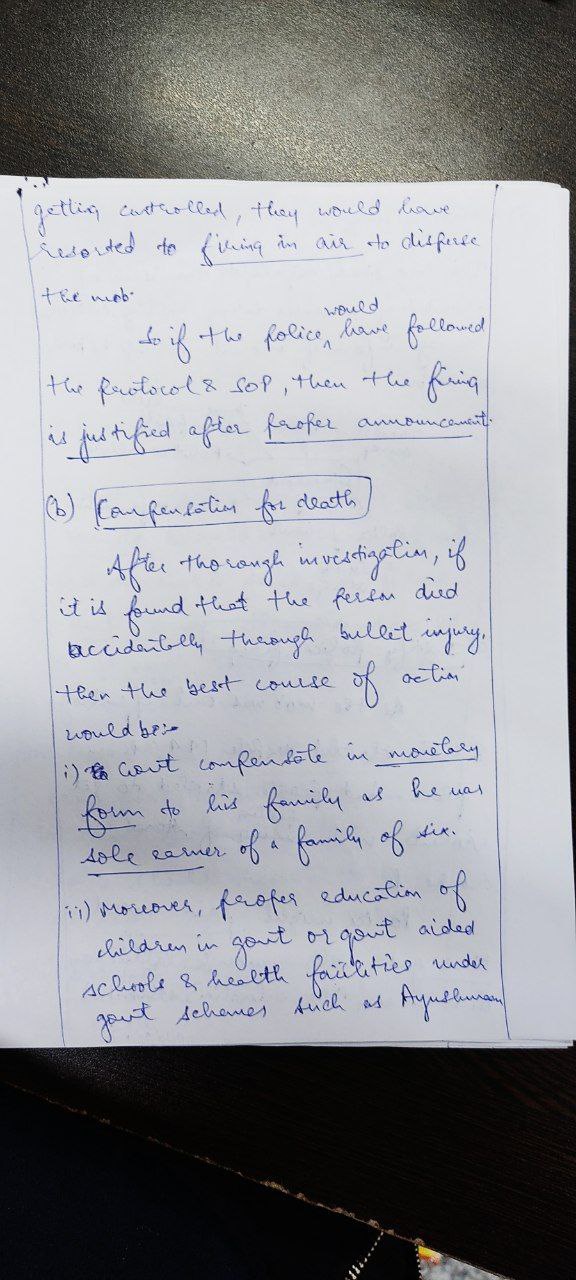 getting controlled, they would have
resorted to firing in air to disperse
the mob.
would
So if the police ^ have followed
the protocol & SOP, then the firing
is justified after proper announcement.
(b) Compensation for death
After thorough investigation, if
it is found that the person died
accidentally through bullet injury,
then the best course of action
would be:-
i) Govt compensate in monetary
form to his family as he was
sole earner of a family of six.
ii) Moreover, proper education of
children in govt or govt aided
schools & health facilities under
govt schemes such as Ayushman